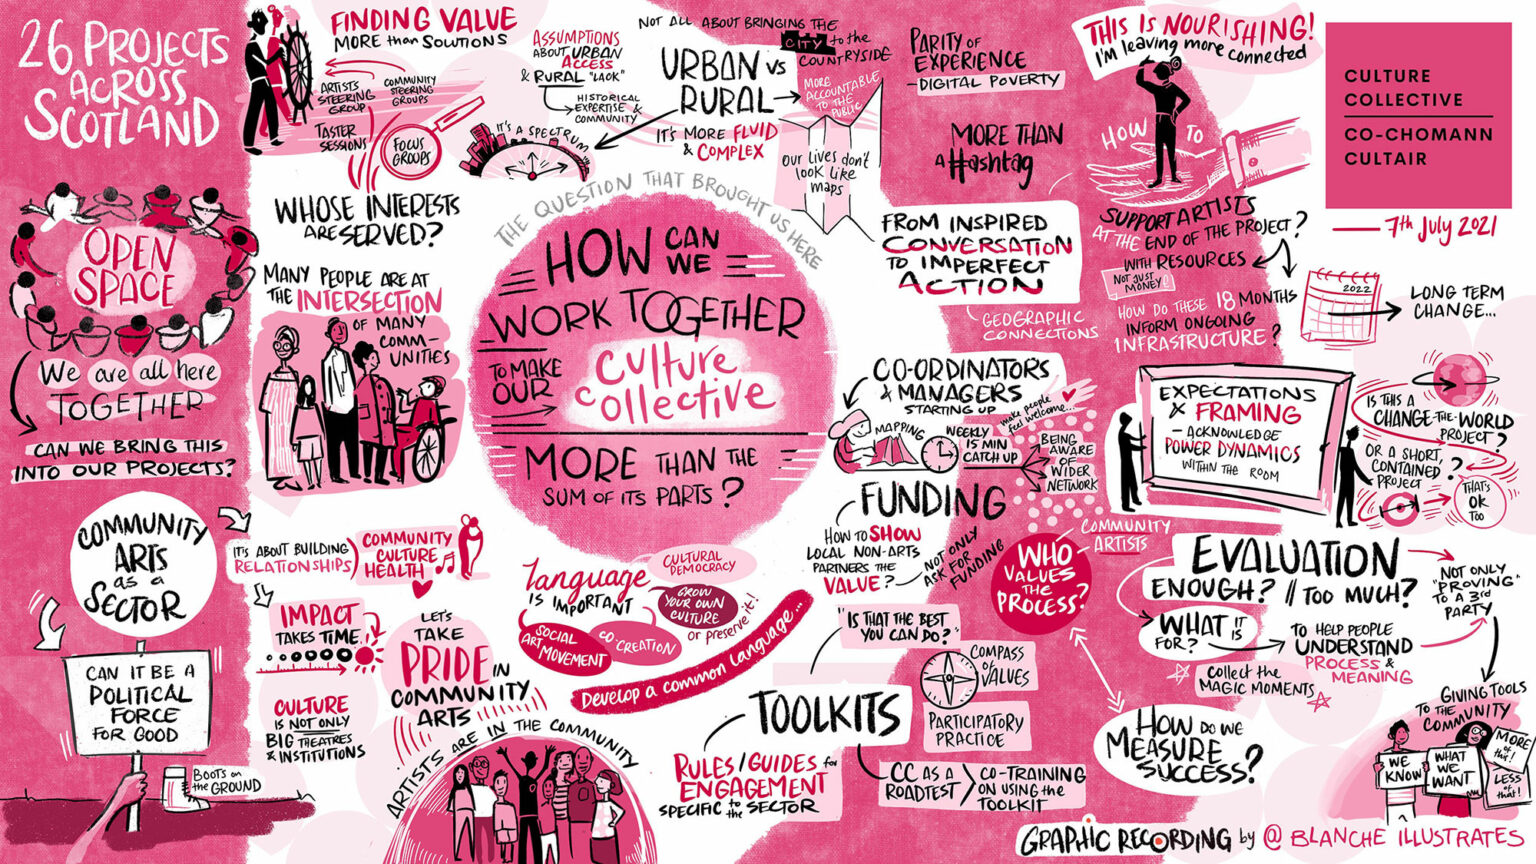 26 PROJECTS
ACROSS
SCOTLAND
OPEN
SPACE
We are all here
TOGETHER
CAN WE BRING THIS
INTO OUR PROJECTS?
COMMUNITY
ARTS
as a
SECTOR
CAN IT BE A
POLITICAL
FORCE
FOR GOOD
BOOTS on
the GROUND
FINDING VALUE
MORE than SOLUTIONS
ARTISTS
STEERING
GROUP
COMMUNITY
STEERING
GROUPS
TASTER
SESSIONS
FOCUS
GROUPS
WHOSE INTERESTS
ARE SERVED?
MANY PEOPLE ARE AT
THE INTERSECTION
OF MANY
COMM-
UNITIES
IT'S ABOUT BUILDING
RELATIONSHIPS
COMMUNITY
CULTURE
HEALTH
IMPACT
TAKES TIME
CULTURE
IS NOT ONLY
BIG THEATRES
& INSTITUTIONS
LET'S
TAKE
PRIDE IN
COMMUNITY
ARTS
ARTISTS ARE IN THE COMMUNITY
ASSUMPTIONS
ABOUT URBAN
ACCESS
& RURAL "LACK"
HISTORICAL
EXPERTISE &
COMMUNITY
NOT ALL ABOUT BRINGING THE
CITY to the
COUNTRYSIDE
URBAN vs
RURAL
IT'S MORE FLUID
& COMPLEX
IT'S A SPECTRUM
MORE
ACCOUNTABLE
TO THE
PUBLIC
Our lives don't
look like
maps
THE QUESTION THAT BROUGHT US HERE
HOW CAN
WE
WORK TOGETHER
TO MAKE
OUR
Culture
Collective
MORE THAN THE
SUM OF ITS PARTS?
language
IS IMPORTANT
CULTURAL
DEMOCRACY
GROW
YOUR OWN
CULTURE
or preserve it!
SOCIAL
ART MOVEMENT
CO-
CREATION
Develop a common language...
PARITY OF
EXPERIENCE
- DIGITAL POVERTY
MORE THAN
a #ashtag
FROM INSPIRED
CONVERSATION
TO IMPERFECT
ACTION
GEOGRAPHIC
CONNECTIONS
CO-ORDINATORS
& MANAGERS
STARTING UP
MAPPING
WEEKLY
15 MIN
CATCH UP
make people
feel welcome...
BEING
AWARE
OF
WIDER
NETWORK
FUNDING
HOW to SHOW
LOCAL NON-ARTS
PARTNERS THE
VALUE?
NOT ONLY
ASK FOR
FUNDING
WHO
VALUES
THE
PROCESS?
COMMUNITY
ARTISTS
"IS THAT THE BEST
YOU CAN DO?"
TOOLKITS
COMPASS
OF
VALUES
PARTICIPATORY
PRACTICE
RULES/GUIDES for
ENGAGEMENT
SPECIFIC to the SECTOR
CC AS A
ROADTEST
CO-TRAINING
ON USING the
TOOLKIT
THIS IS NOURISHING!
I'm leaving more connected
HOW TO
SUPPORT ARTISTS
AT THE END OF THE PROJECT?
WITH RESOURCES
NOT JUST
MONEY
HOW DO THESE 18 MONTHS
INFORM ONGOING
INFRASTRUCTURE?
2022
LONG TERM
CHANGE...
CULTURE
COLLECTIVE
CO-CHOMANN
CULTAIR
7th July 2021
EXPECTATIONS
& FRAMING
- ACKNOWLEDGE
POWER DYNAMICS
WITHIN THE ROOM
IS THIS A
CHANGE-THE-WORLD
PROJECT?
OR A SHORT,
CONTAINED
PROJECT?
THAT'S
OK
TOO
EVALUATION
ENOUGH? // TOO MUCH?
NOT ONLY
"PROVING"
TO A 3rd
PARTY
WHAT IS IT
FOR?
TO HELP PEOPLE
UNDERSTAND
PROCESS &
MEANING
Collect the
MAGIC MOMENTS
HOW DO WE
MEASURE
SUCCESS?
GIVING TOOLS
TO THE
COMMUNITY
WE
KNOW
WHAT
WE
WANT
MORE
of this!
LESS
of that!
GRAPHIC RECORDING by @ BLANCHE ILLUSTRATES